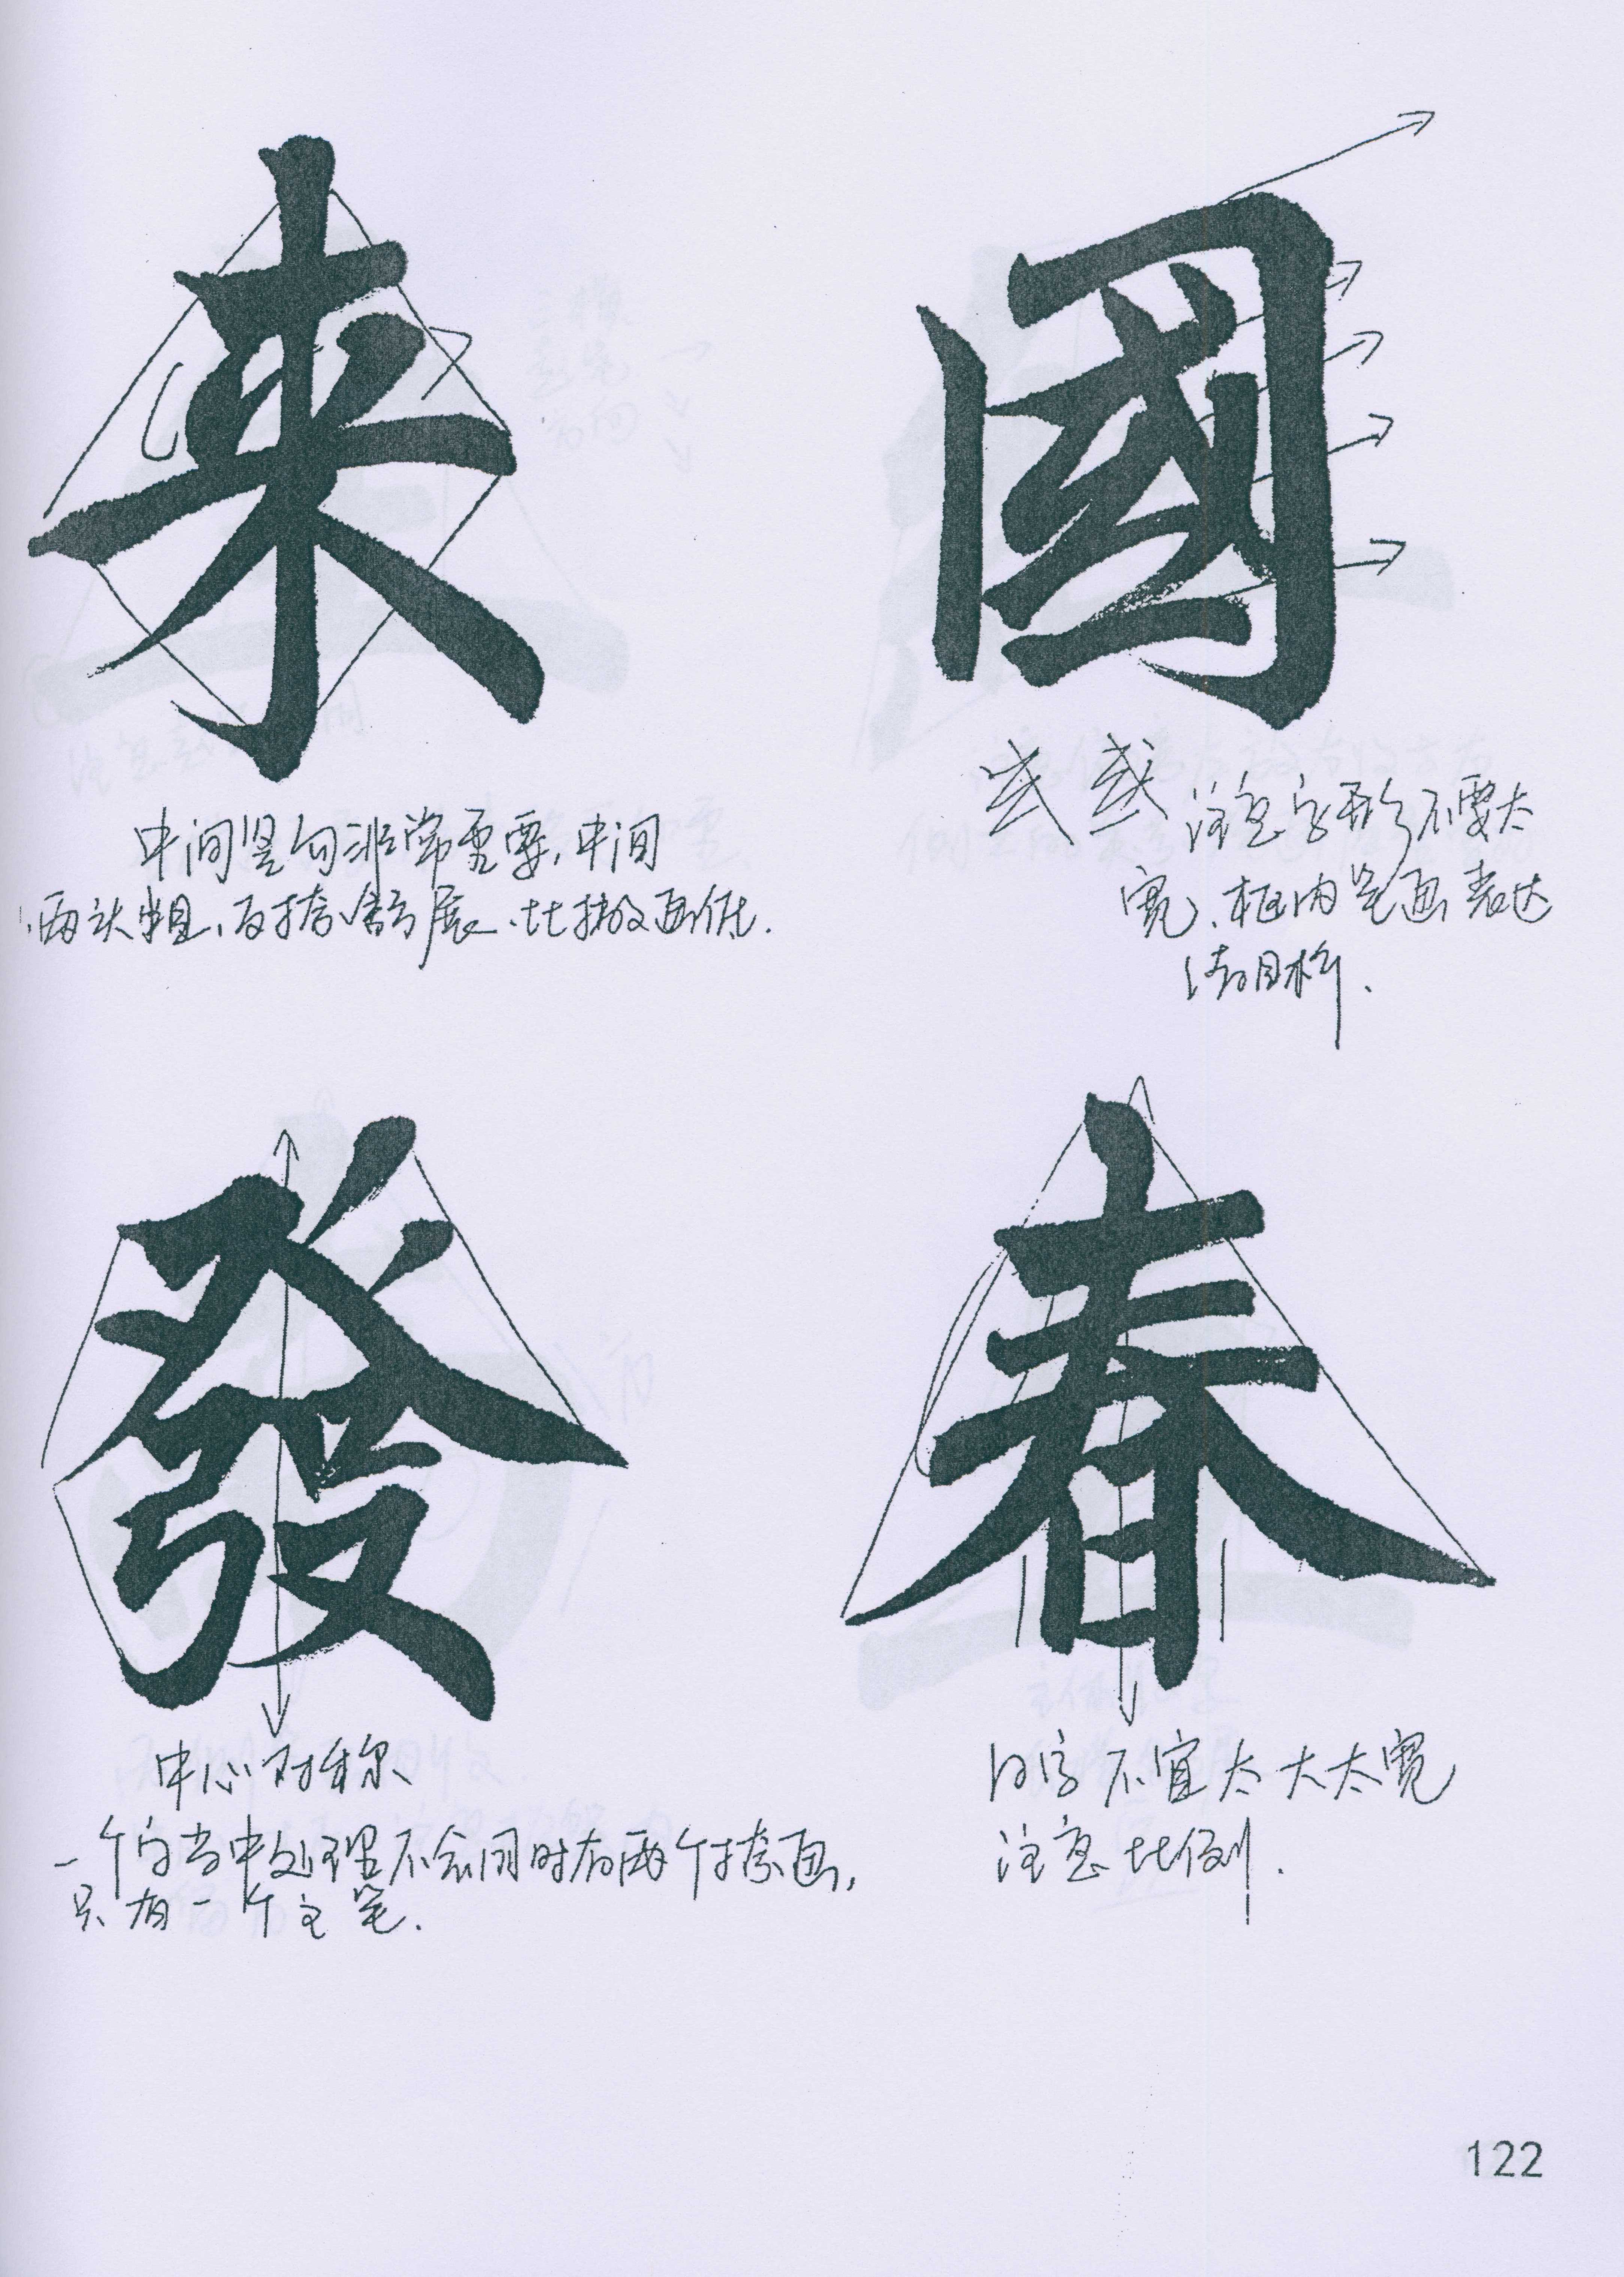 来
中间竖勾非常重要,中间
两头粗、反捺伸展、比撇画低.
國
或 或 注意字形不要太
宽、框内笔画表达
清晰.
發
中心对称
一个字当中处理不会同时有两个捺画,
只有一个主笔.
春
日字不宜太大太宽
注意比例.
122